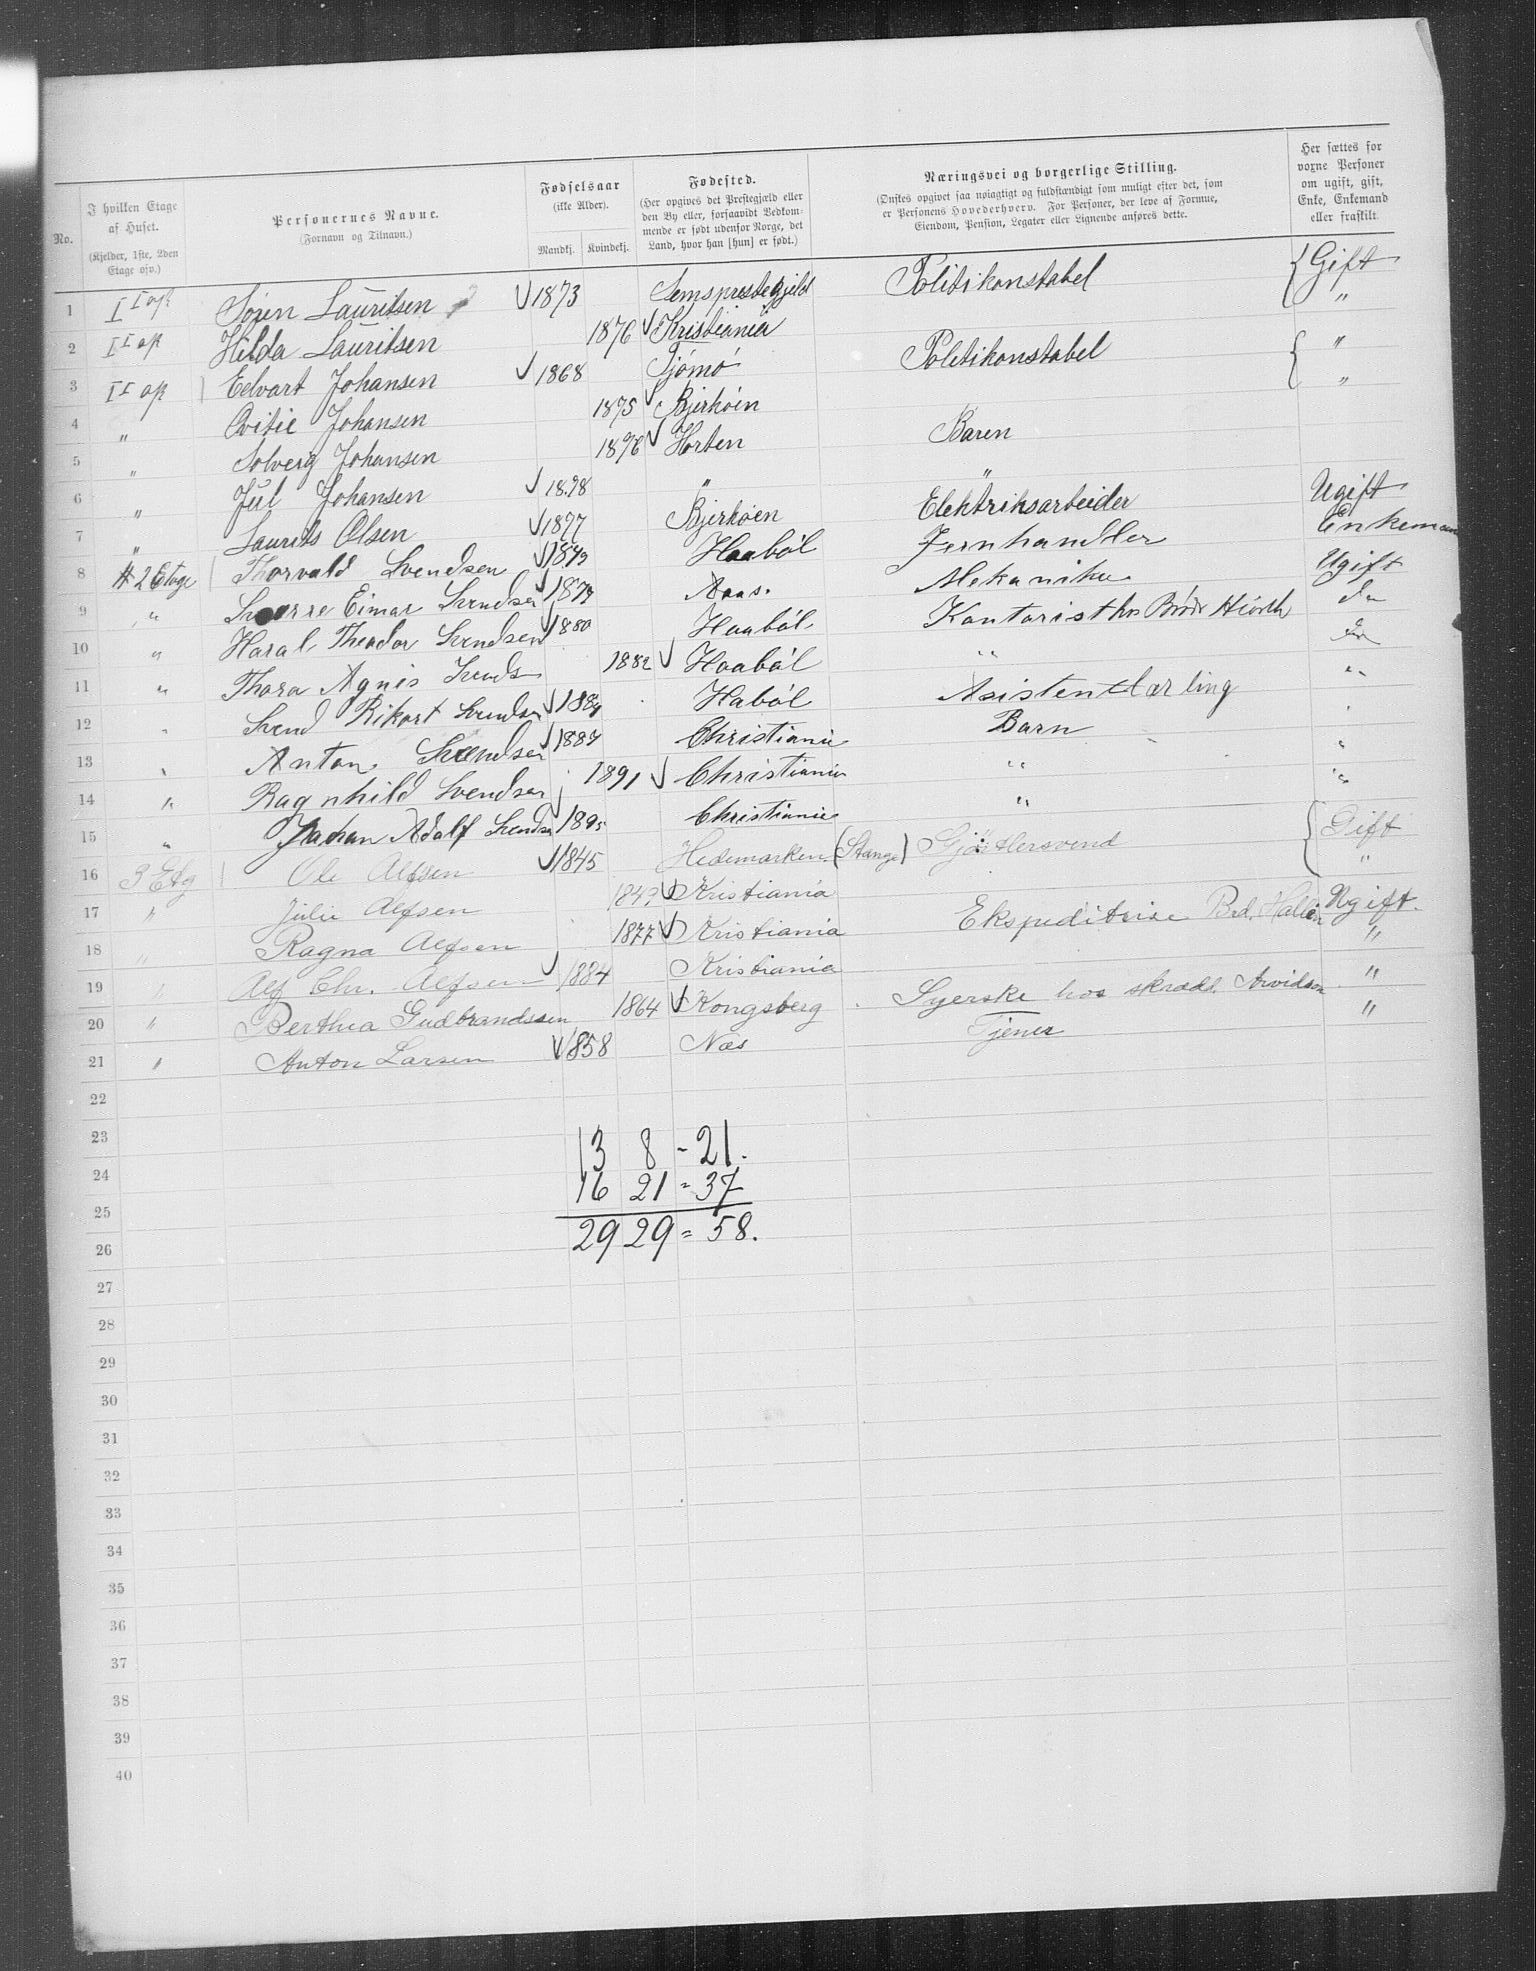 No. I hvilken Etage af Huset. (Kjelder, 1ste, 2den Etage osv.) Personernes Navne. (Fornavn og Tilnavn.) Fødselsaar (ikke Alder). Mandkj. Kvindekj. Fødested. (Her opgives det Prestegjæld eller den By eller, forsaavidt Vedkommende er født udenfor Norge, det Land, hvor han [hun] er født.) Næringsvei og borgerlige Stilling. (Ønskes opgivet saa nøiagtigt og fuldstændigt som muligt efter det, som er Personens Hovederhverv. For Personer, der leve af Formue, Eiendom, Pension, Legater eller Lignende anføres dette. Her sættes for voxne Personer om ugift, gift, Enke, Enkemand eller fraskilt.
1 Sören Lauritsen 1873 Semsprestegjeld Politikonstabel Gift
2 Hilda Lauritsen 1876 Kristiania "
3 Edvart Johansen 1868 Tjömö Politikonstabel "
4 " Johansen 1875 Bjerköen "
5 " Solveig Johansen 1896 Horten Baren
6 " Jul Johansen 1898 " "
7 " Laurits Olsen 1877 Bjerköen Elektriksarbeider Ugift
8 2 Etage Thorvald Svendsen Haaböl Jernhandler Enkeman
9 " Eimar Svendsen Aaas. Mekaniker Ugift
10 " Haral Theodor Svendsen 1880 Haaböl Kontorist hos Brödr Hiorth do
11 " Thora Agnis Svends 1882 Haaböl " do
12 " Svend Rikart Svendsen 1884 Haböl Asistent Lærling "
13 " Anton Svendsen 1887 Christiania Barn "
14 " Ragnhild Svendsen 1891 Christiania " "
15 " Johan Adolf Svendsen 1895 Christiania " "
16 3 Etg Ole Alfsen 1845 Hedemarken (Stange) Gjörtlersvend Gift
17 " Julie Alfsen 1849 Kristiania "
18 " Ragna Alfsen 1877 Kristiania Ekspeditrise Brd. Hallén Ugift.
19 " Alf Chr. Alfsen 1884 Kristiania "
20 " Berthea Gudbrandssen 1864 Kongsberg Syerske hos skrædd. Arvidsen "
21 " Anton Larsen 1858 Næs Tjener "
22
23
13 8 - 21.
24
16 21 = 37
25
29 29 = 58.
26
27
28
29
30
31
32
33
34
35
36
37
38
39
40